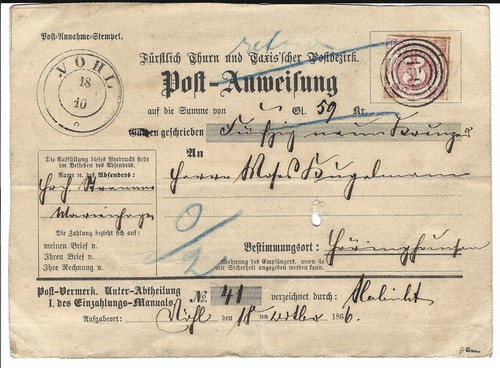 Post-Annahme-Stempel.
VÖHL
18
10
Fürstlich Thurn und Taxis'scher Postbezirk.
Post-Anweisung
auf die Summe von Gl. 59 Kr.
geschrieben Fünfzig neun Kreuzer
An
Herrn Moses Kugelmann
Die Ausfüllung dieses Vordrucks steht
im Belieben des Absenders.
Name des Absenders:
Marienhagen
Die Zahlung bezieht sich auf:
meinen Brief v.
Ihren Brief v.
Ihre Rechnung v.
Bestimmungsort: Höringhausen
Wohnung des Empfängers, wenn sie
mit Sicherheit angegeben werden kann.
Post-Vermerk. Unter-Abtheilung
I. des Einzahlungs-Manuals.
No. 41 verzeichnet durch:
Aufgabeort: Vöhl den 18 ten October 1866.